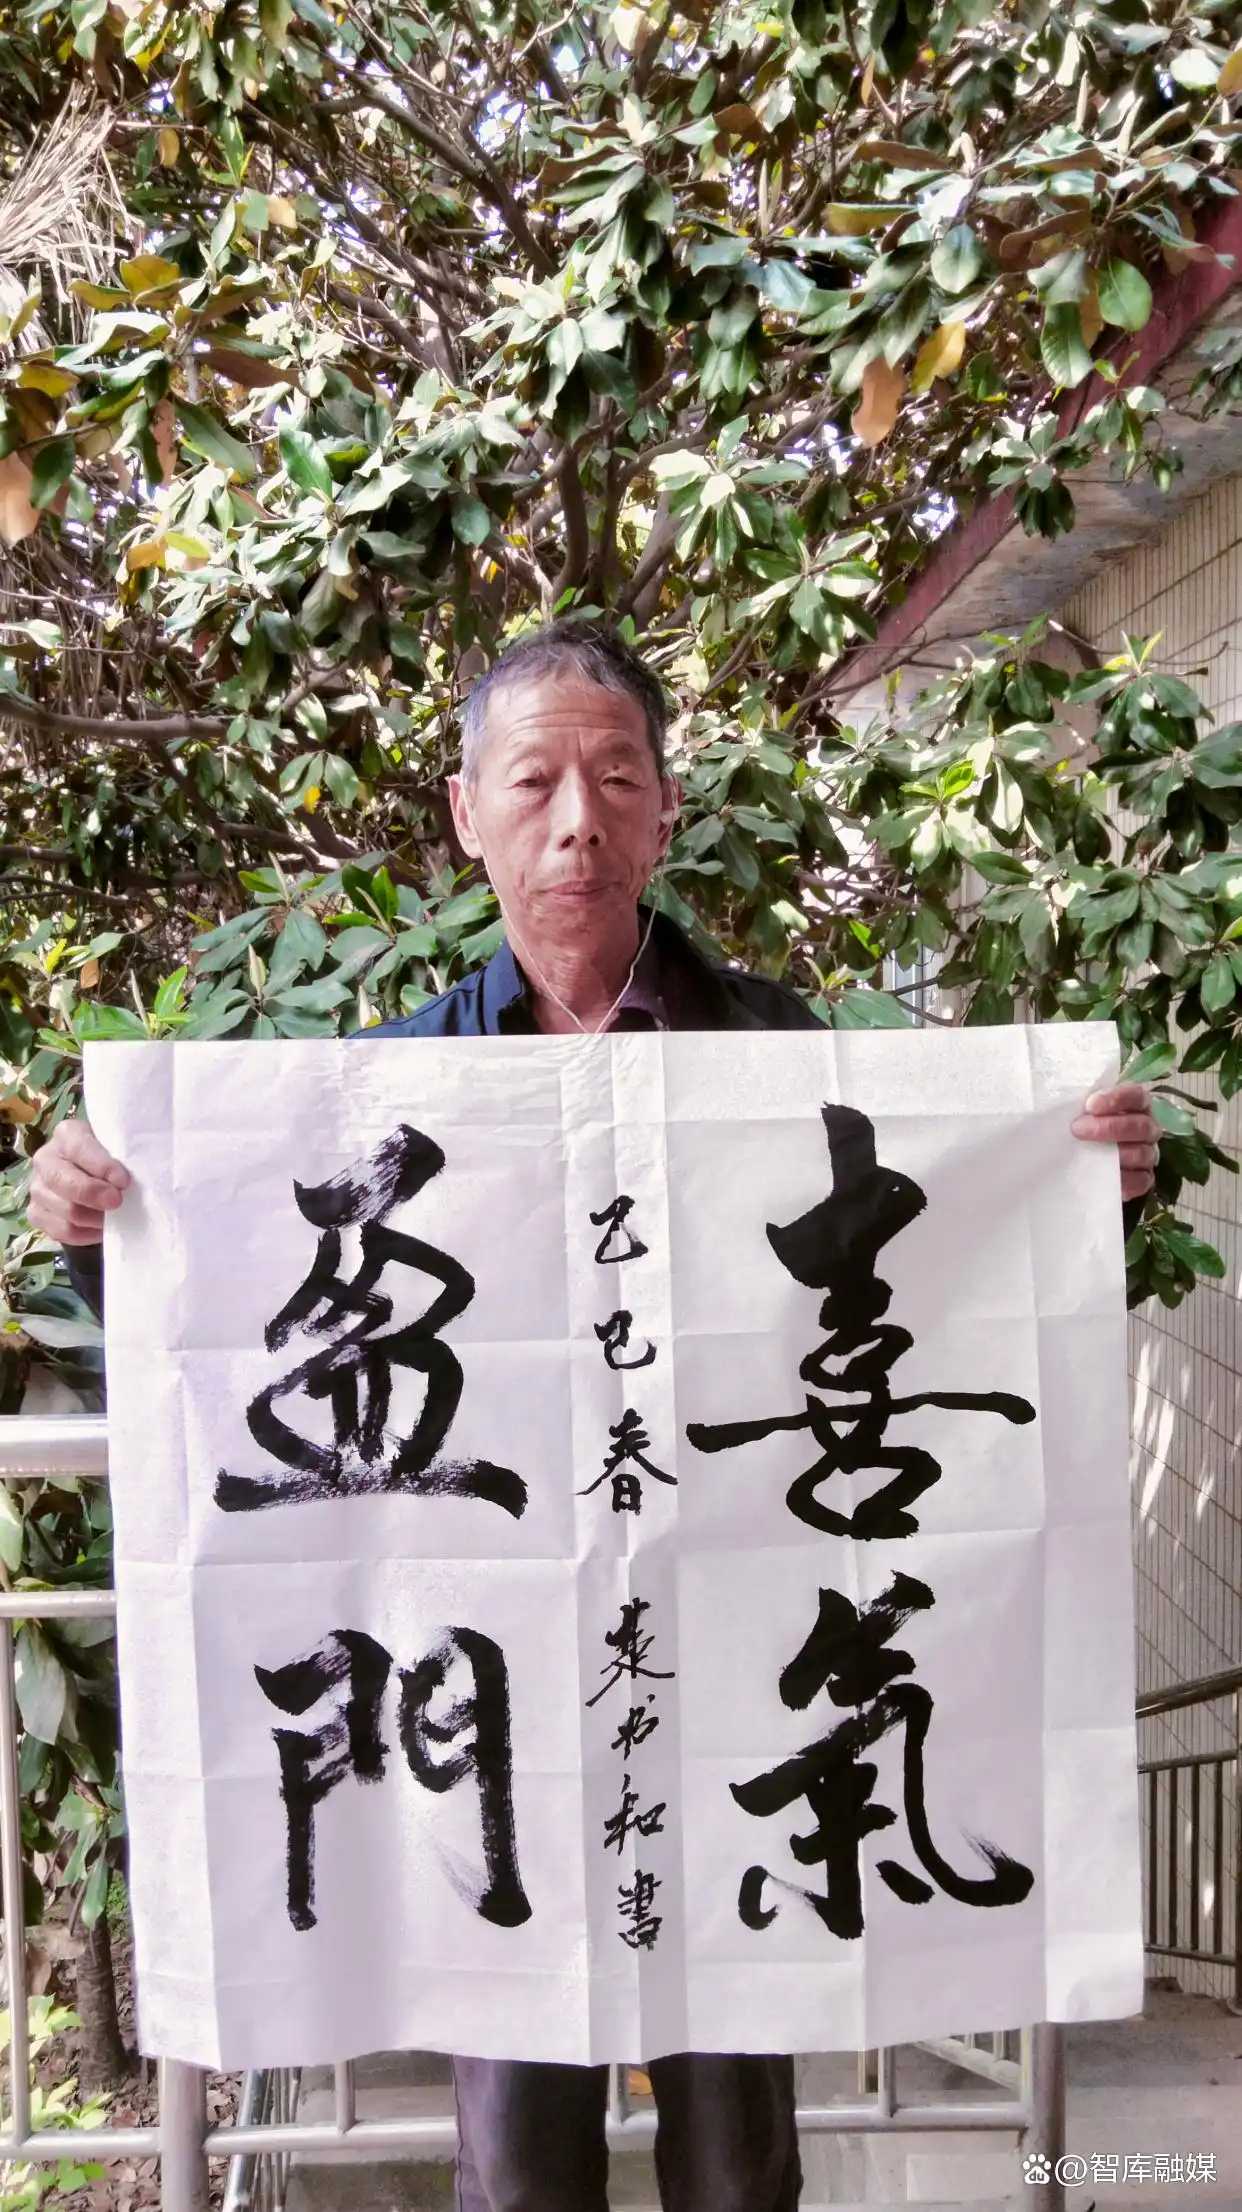 喜氣
盈門
乙巳春 莱书和書
@智库融媒